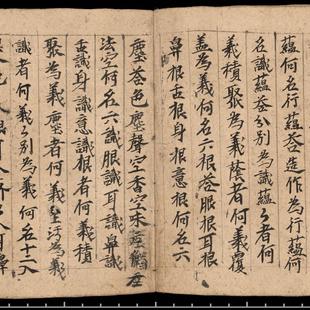 蕴何名行蕴荅造作為行蕴何
名識蕴荅分別為識蕴々者何
義積聚為義蔭者何義覆
盖為義何名六根荅眼根耳根
鼻根舌根身根意根何名六
塵荅色塵聲空香空味空觸空
法空何名六識眼識耳識鼻識
舌識身識意識根者何義積
聚為義塵者何義坌汙為義
識者何義了別為義何名十二入